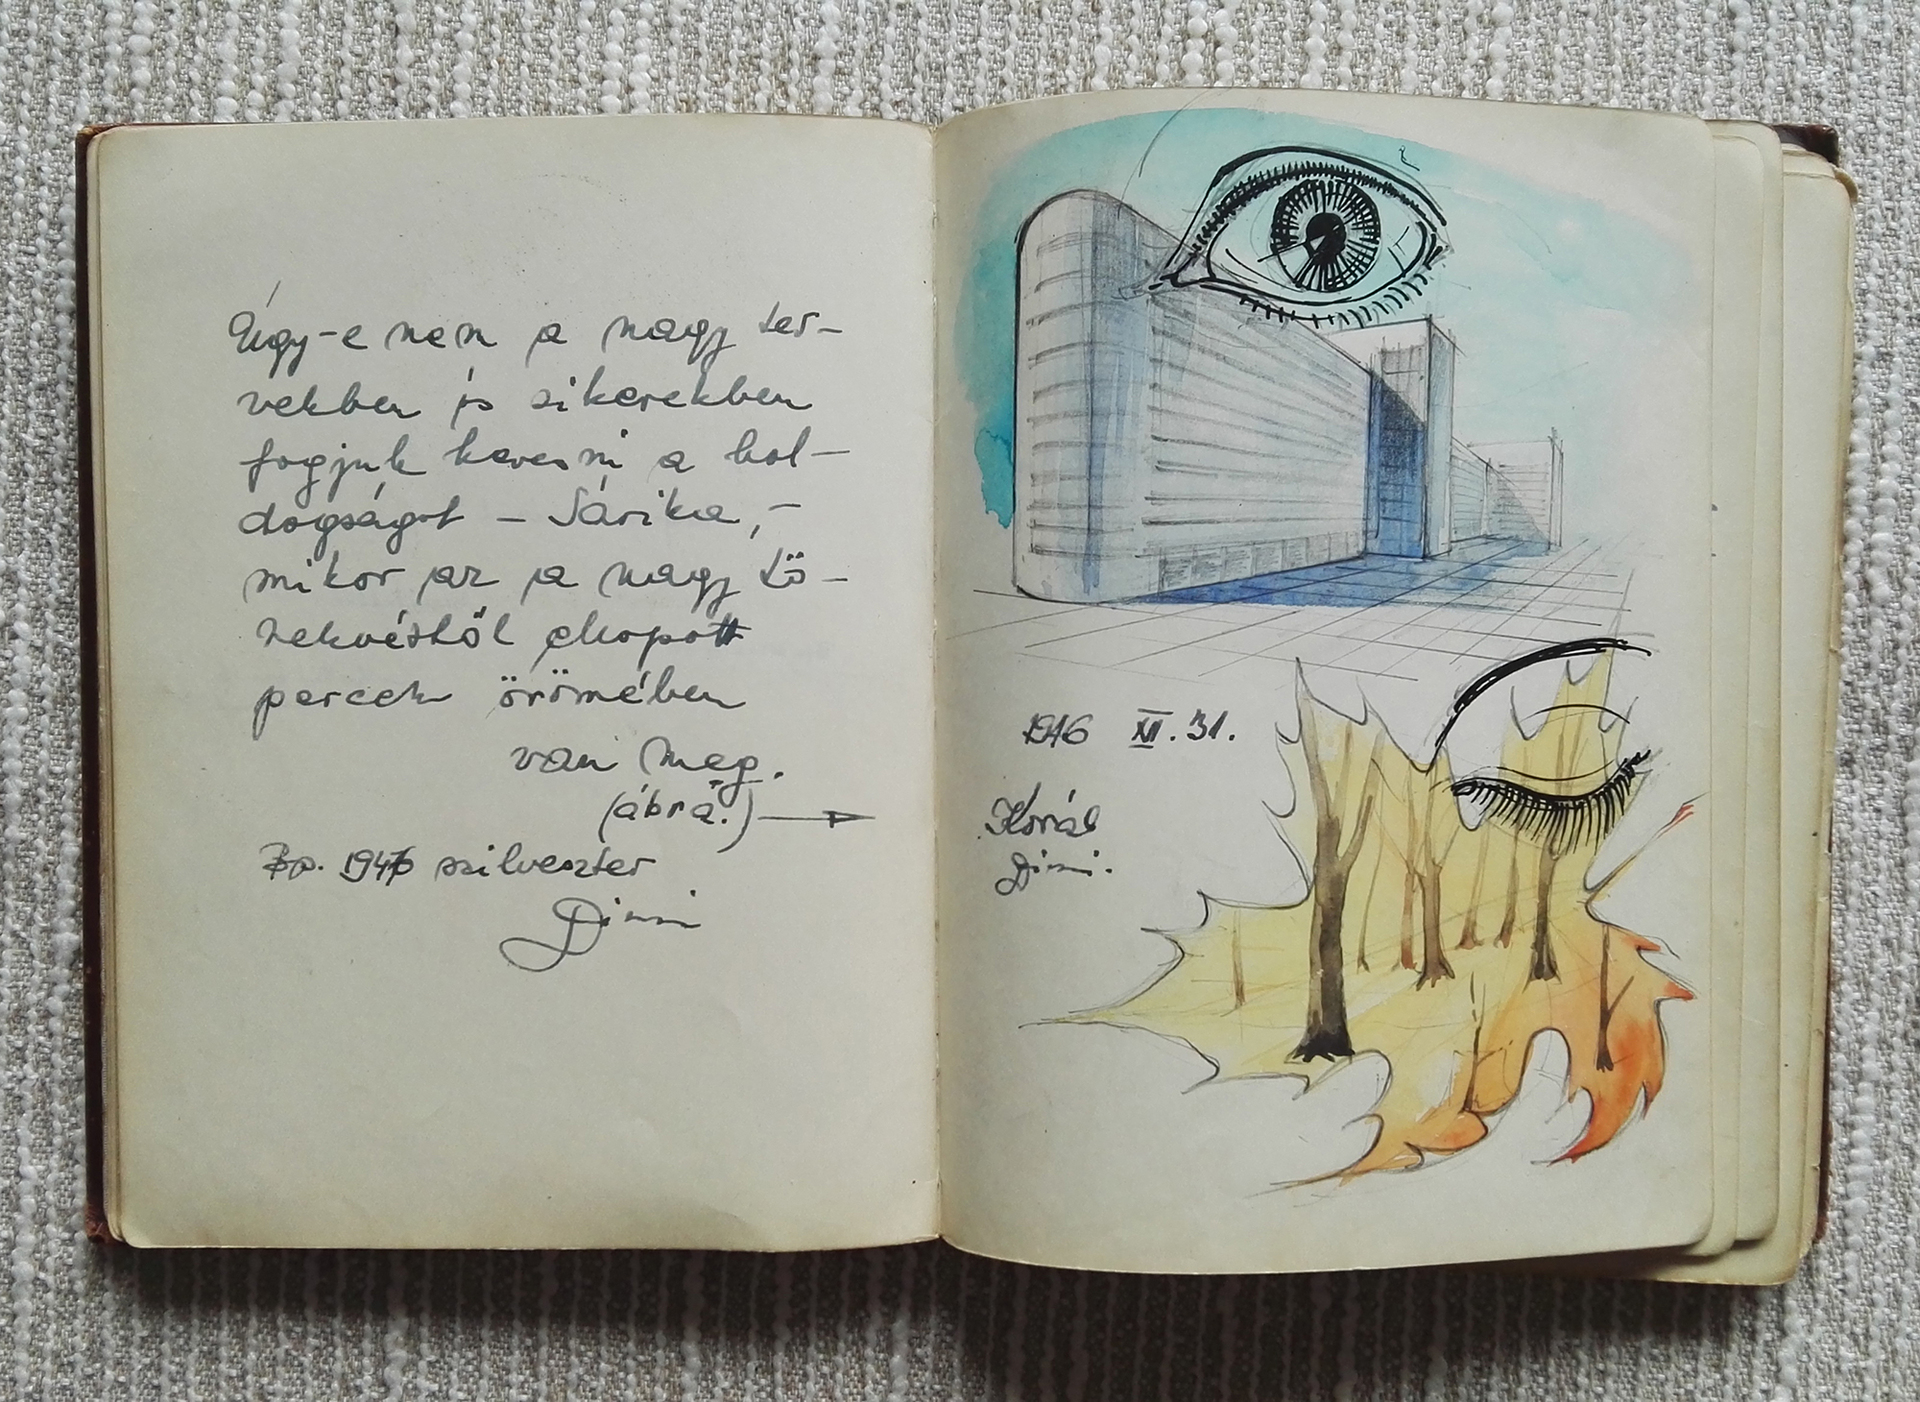 Úgy-e nem a nagy ter-
vekben és sikerekben
fogjuk keresni a bol-
dogságot - Sárika, -
mikor az a nagy tö-
rekvéstől ellopott
percek örömében
van meg.
(ábra.)
Bp. 1946 szilveszter
1946 XII. 31.